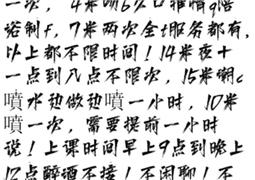 一次，4米呐6次口雅情q陪
浴制f，7米两次全t服务都有，
以上都不限时间！14米夜十
一点到八点不限次，15米潮c
噴水边做边噴一小时，10米
噴一次，需要提前一小时
说！上课时间早上9点到晚上
12点醉酒不接！不闲聊！不